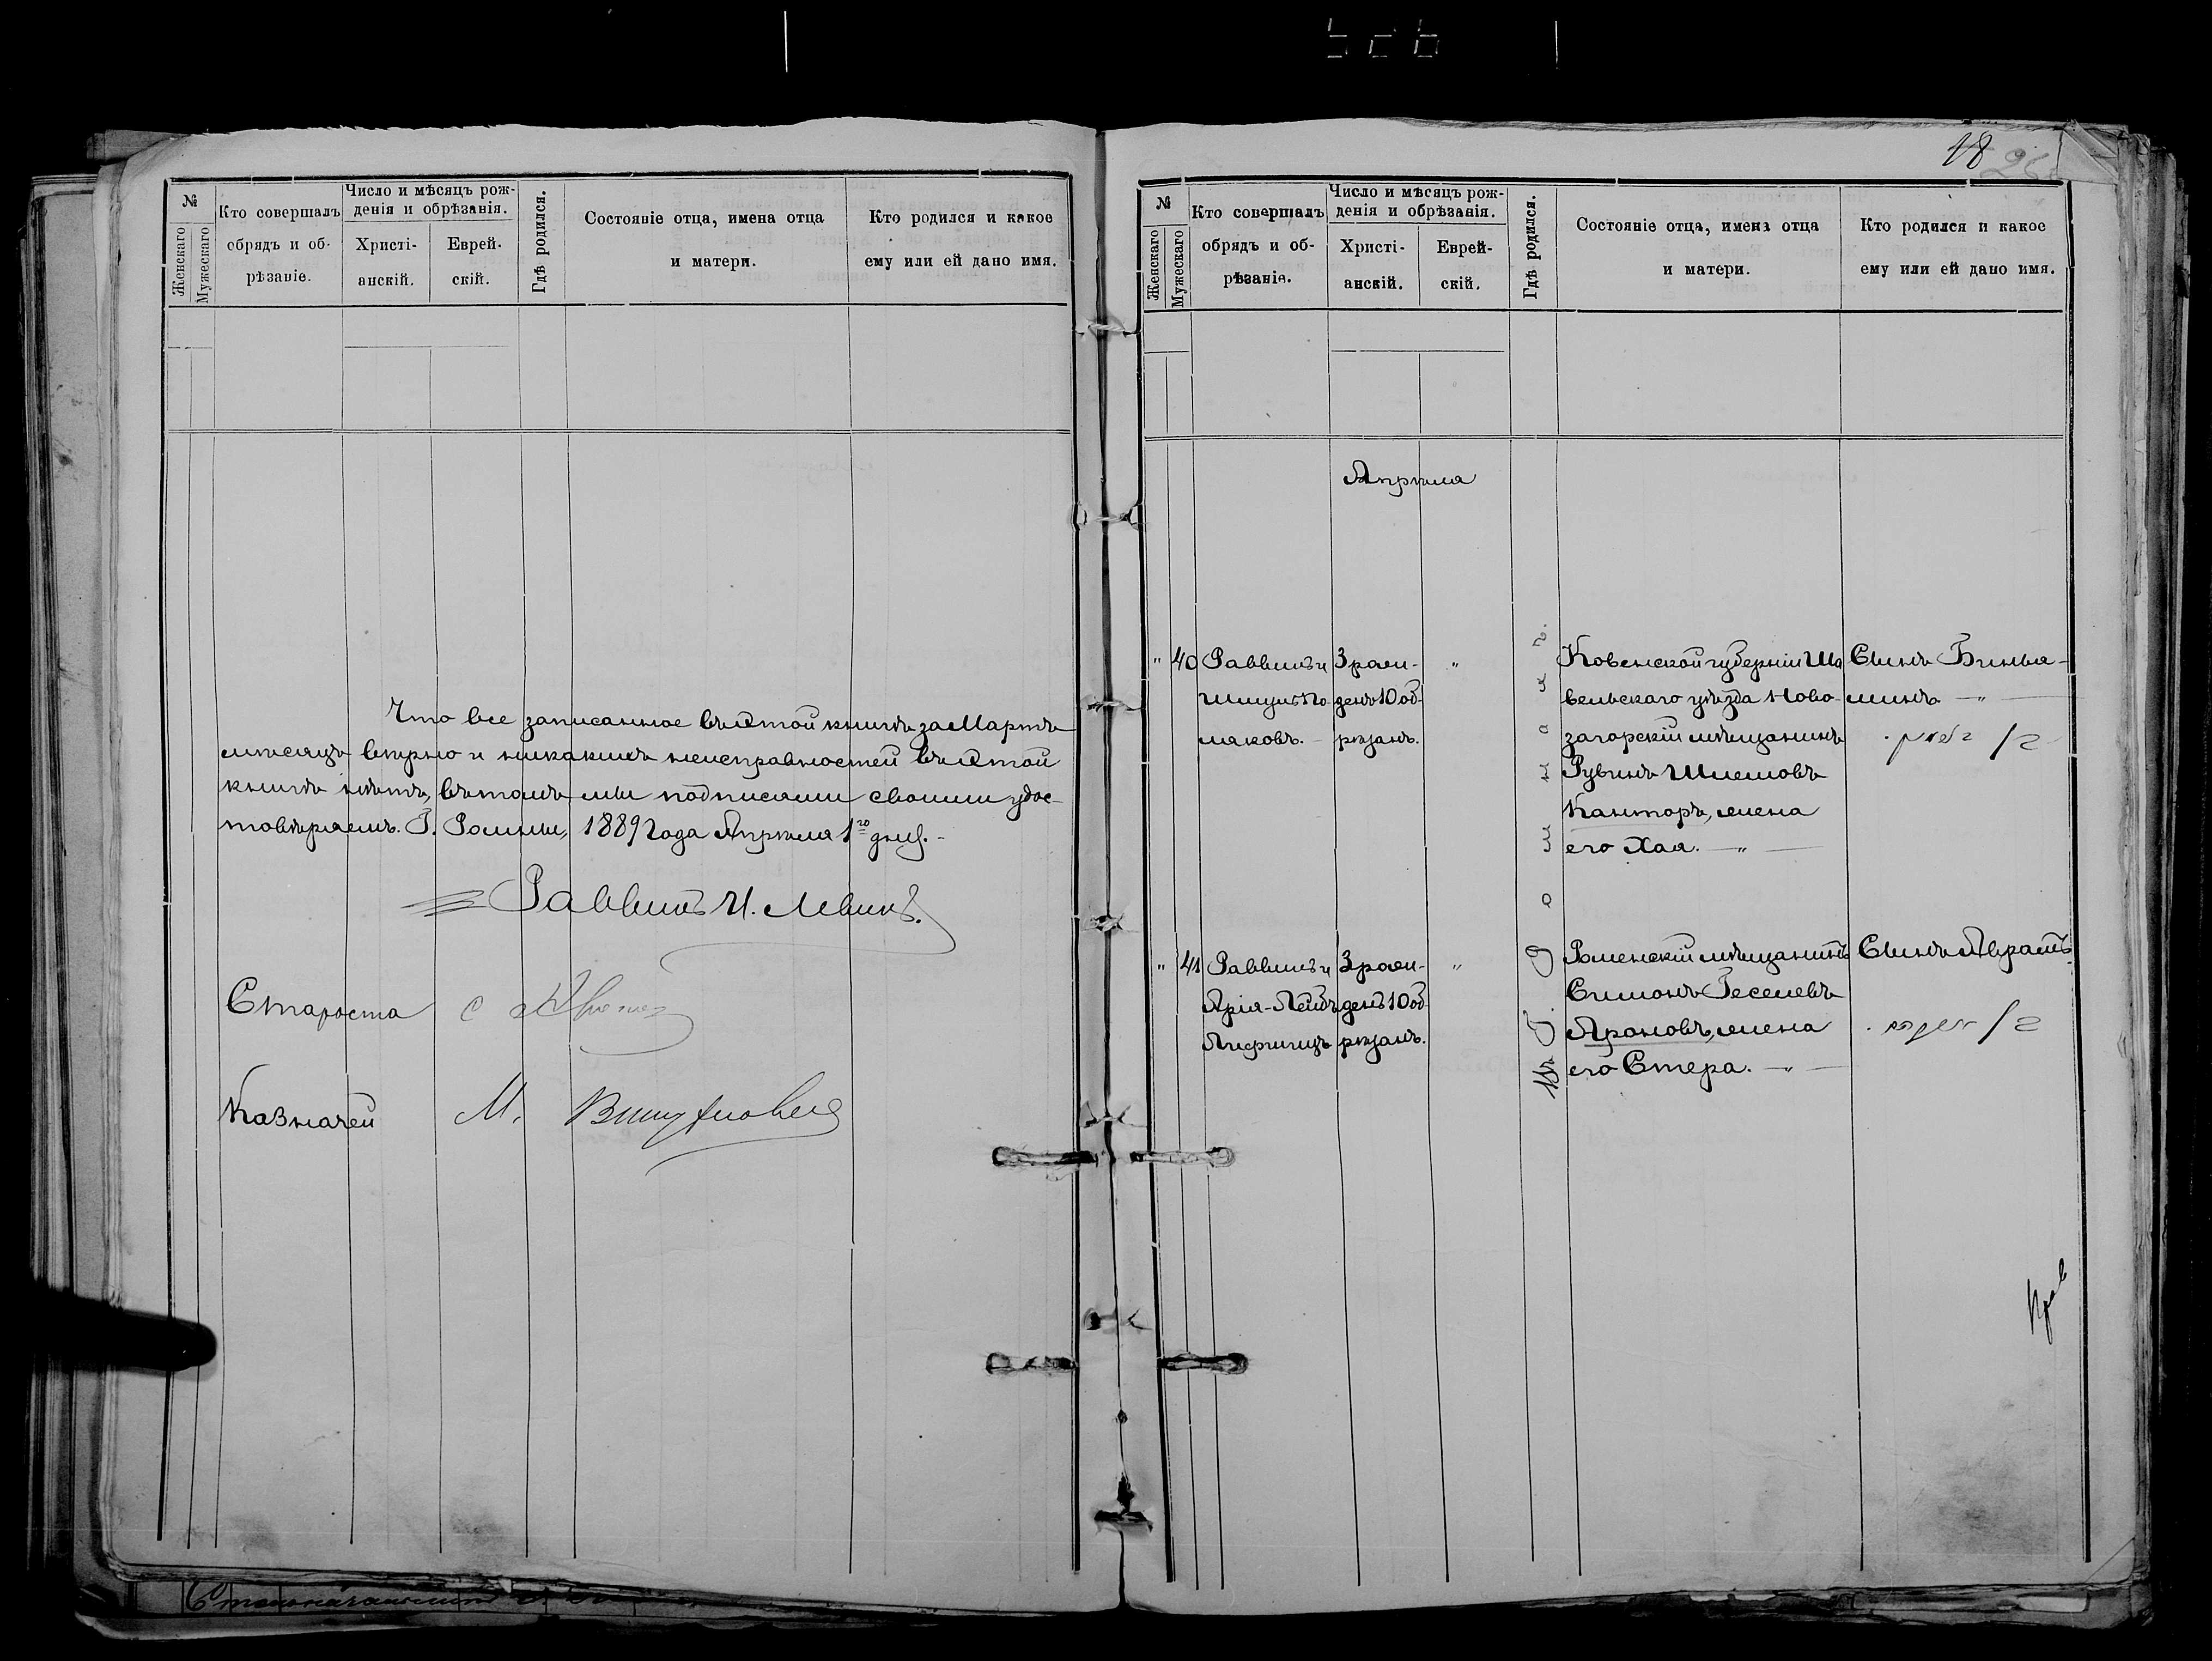 №
Женскаго
Мужескаго
Кто совершалъ
обрядъ и об-
рѣзаніе.
Число и мѣсяцъ рож-
денія и обрѣзанія.
Христі-
анскій.
Еврей-
скій.
Гдѣ родился.
Состояніе отца, имена отца
и матери.
Кто родился и какое
ему или ей дано имя.
Что все записанное въ этой книгѣ за Мартъ
мѣсяцъ вѣрно и никакихъ неисправностей въ этой
книгѣ нѣтъ, въ томъ мы подписями своими удос-
товѣряемъ. Г. Ромны, 1889 года Апрѣля 1го дня.
Раввинъ И. Левинъ.
Староста С
Казначей М.
18
№
Женскаго
Мужескаго
Кто совершалъ
обрядъ и об-
рѣзаніе.
Число и мѣсяцъ рож-
денія и обрѣзанія.
Христі-
анскій.
Еврей-
скій.
Гдѣ родился.
Состояніе отца, имена отца
и матери.
Кто родился и какое
ему или ей дано имя.
Апрѣля
" 40 Раввинъ и
Шмуль По-
ляковъ.
3 рож-
денъ 10 об-
рѣзанъ.
"
Въ Г. Ромнахъ.
Ковенской губерніи Ша
вельскаго уѣзда Ново-
загорскій мѣщанинъ
Рувинъ Шлемовъ
Канторъ, жена
его Хая. — " —
Сынъ Бинья-
минъ — " —
" 41 Раввинъ и
Арія-Лейбъ
Лифшицъ
3 рож-
денъ 10 об-
рѣзанъ.
"
Роменскій мѣщанинъ
Симонъ Геселевъ
Ароновъ, жена
его Стера. — " —
Сынъ Абрамъ